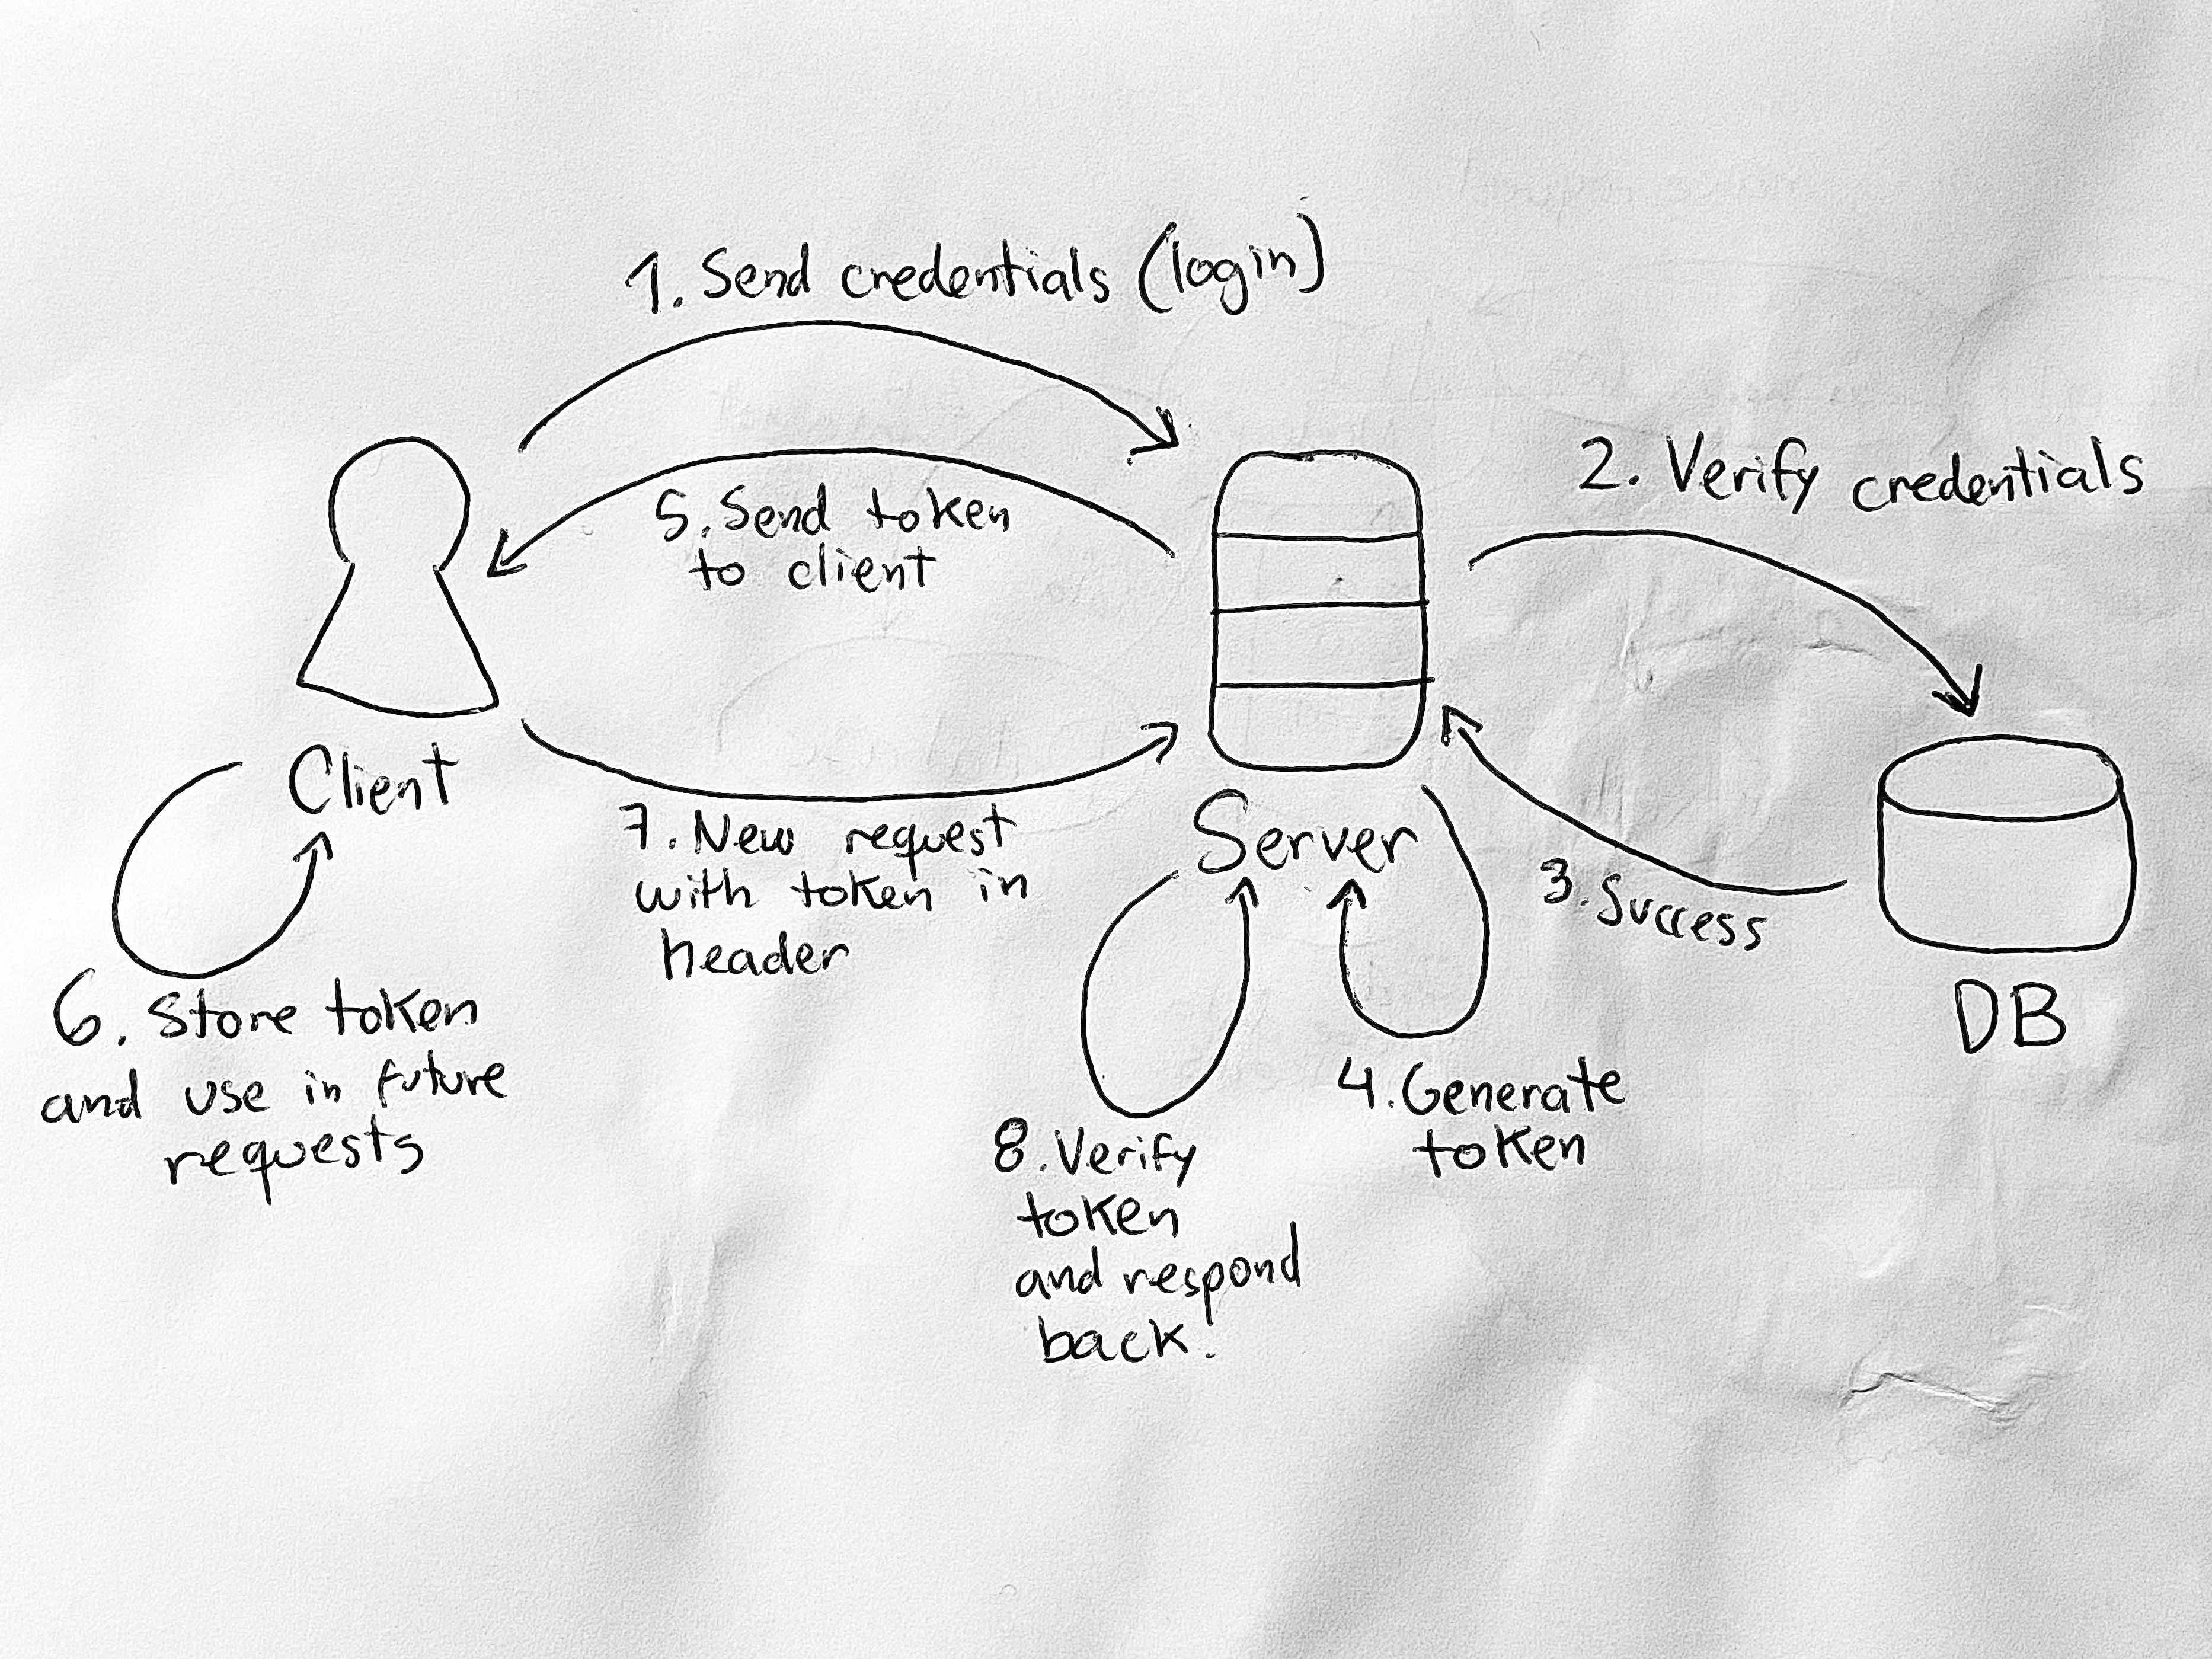 1. Send credentials (login)
2. Verify credentials
5. Send token
to client
Client
7. New request
with token in
header
Server
3. Success
DB
6. Store token
and use in future
requests
4. Generate
token
8. Verify
token
and respond
back.